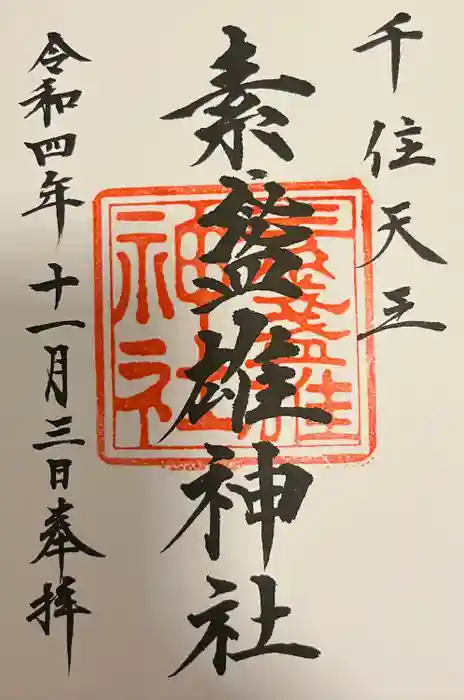 千住天王
素盞雄神社
令和四年十一月三日奉拝